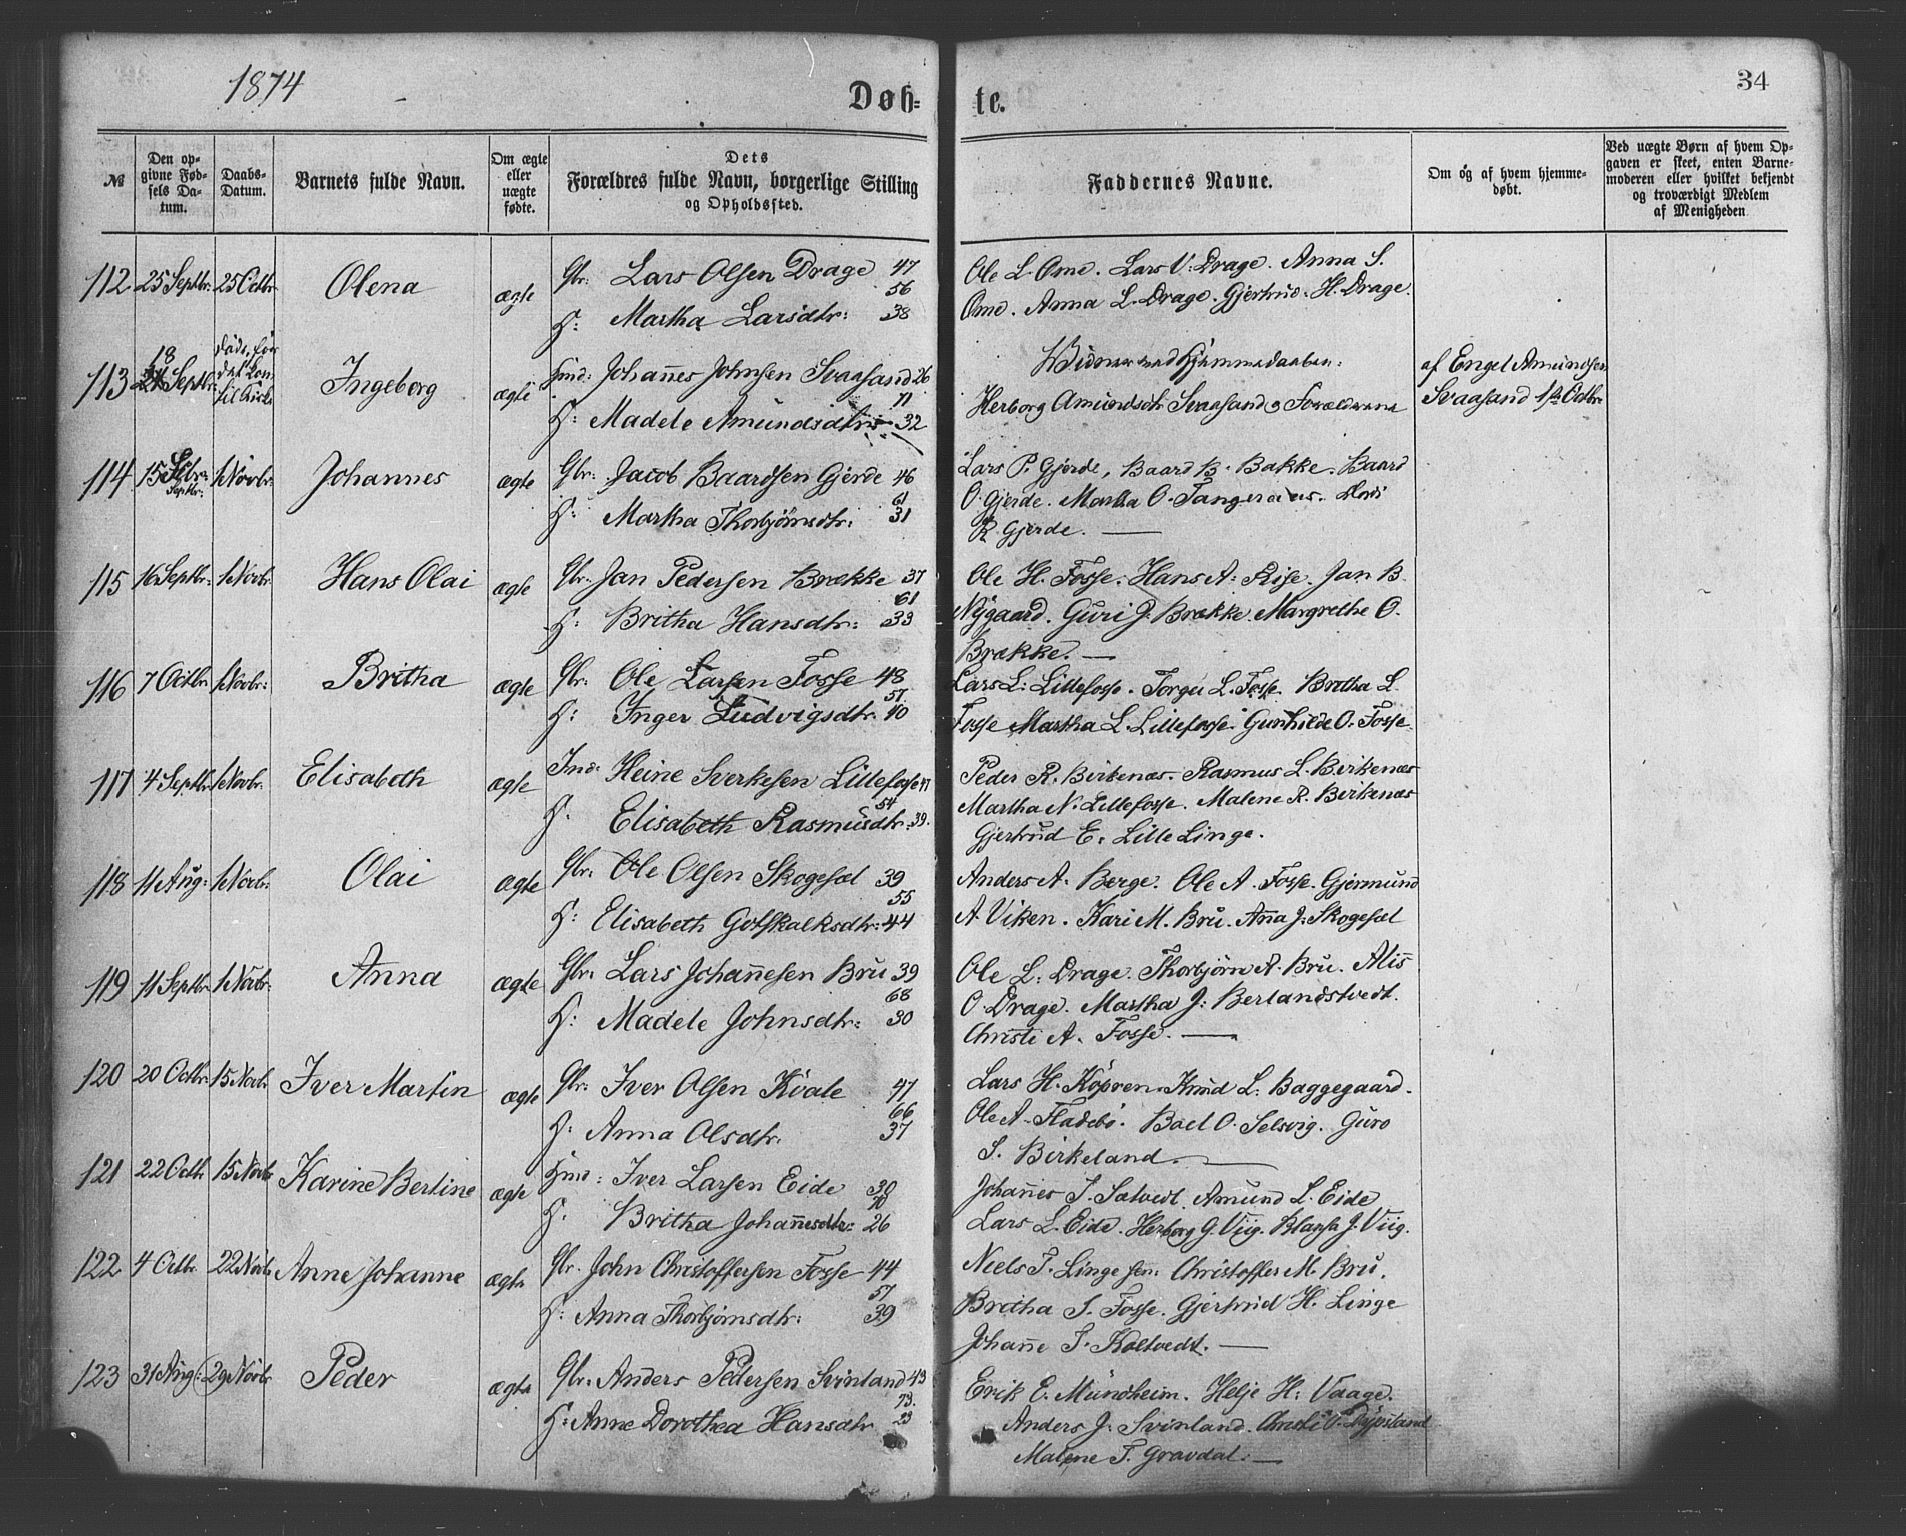 1874
Døb-
te.
34
№
Den op-
givne Fød-
sels Da-
tum.
Daabs-
Datum.
Barnets fulde Navn.
Om ægte
eller
uægte
fødte.
Dets
Forældres fulde Navn, borgerlige Stilling
og Opholdssted.
Faddernes Navne.
Om og af hvem hjemme-
døbt.
Ved uægte Børn af hvem Op-
gaven er skeet, enten Barne-
moderen eller hvilket bekjendt
og troværdigt Medlem
af Menigheden
112 25 Septbr: 25 Octbr. Olena ægte Gbr: Lars Olsen Drage 47
56
H: Martha Larsdtr: 38
Ole L. Ome. Lars V. Drage. Anna S.
Ome. Anna L. Drage. Gjertrud H. Drage.
113 18 Septbr: Døds. før
det kom
til Kirke
Ingeborg ægte Hmd: Johannes Johnsen Svaasand 26
71
H: Madele Amundsdtr: 32
Vidner ved Hjemmedaaben:
Herborg Amundsdtr Svaasand & Forældrene
af Engel Amundsen
Svaasand 1ste Octbr.
114 15 Septbr: 1 Novbr. Johannes ægte Gbr: Jacob Baardsen Gjerde 46
61
H: Martha Thorbjørnsdtr: 31
Lars P. Gjerde, Baard B. Bakke. Baard
O. Gjerde. Martha O. Tangeraas.
R. Gjerde. —
115 16 Septbr: 1 Novbr. Hans Olai ægte Gbr. Jan Pedersen Brække 37
61
H: Britha Hansdtr: 33
Ole H. Fosse. Hans A. Rise. Jan B.
Nygaard. Guri J. Brække. Margrethe O.
Brække. —
116 7 Octbr. 1 Novbr: Britha ægte Gbr: Ole Larsen Fosse 48
57
H: Inger Ludvigsdtr. 40
Lars L. Lillefosse. Torger L. Fosse. Britha L.
Fosse Martha L. Lillefosse. Gunhilde O. Fosse.
117 4 Septbr. 1 Novbr. Elisabeth ægte Ind: Heine Sverkesen Lillefosse 47
54
H. Elisabeth Rasmusdtr: 39.
Peder R. Birkenæs. Rasmus L. Birkenæs
Martha N. Lillefosse. Malene R. Birkenæs
Gjertrud E. Lille Linge.
118 11 Aug: 1 Novbr. Olai ægte Gbr. Ole Olsen Skogesæl 39
55
H: Elisabeth Gotskalksdtr: 44
Anders A. Berge. Ole A. Fosse. Gjermund
A. Viken. Kari M. Bru. Anna J. Skogesæl
119 11 Septbr. 1 Novbr. Anna ægte Gbr. Lars Johannesen Bru 39
68
H: Madele Johnsdtr: 30
Ole L. Drage. Thorbjørn A. Bru. Alis
O. Drage. Martha J. Berlandstvedt.
Christi A. Fosse. —
120 20 Octbr. 15 Novbr. Iver Martin ægte Gbr: Iver Olsen Kvale 47
66
H. Anna Olsdtr. 37
Lars H. Køpren. Knud L. Baggegaard.
Ole A. Fladebø. Boel O. Selsvig. Guro
S. Birkeland. —
121 22 Octbr 15 Novbr Karine Bertine ægte Hmd: Iver Larsen Eide 30
H. Britha Johannesdtr: 26
Johannes J. Sætvedt. Amund L. Eide
Lars L. Eide. Herborg G. Viig. Blansa J. Viig.
122 4 Octbr 22 Novbr Anne Johanne ægte Gbr. John Christoffersen Fosse 44
57
H: Anna Thorbjørnsdtr: 39
Neels T. Linge sen. Christoffer M. Bru.
Britha S. Fosse. Gjertrud H. Linge
Johanne T. Koltvedt. —
123 31 Aug: 29 Novbr. Peder ægte Gbr. Anders Pedersen Svinland 43
73.
H: Anne Dorothea Hansdtr 23
Erik E. Mundheim. Helje H. Vaage.
Anders J. Svinland.
Malene T. Gravdal. —